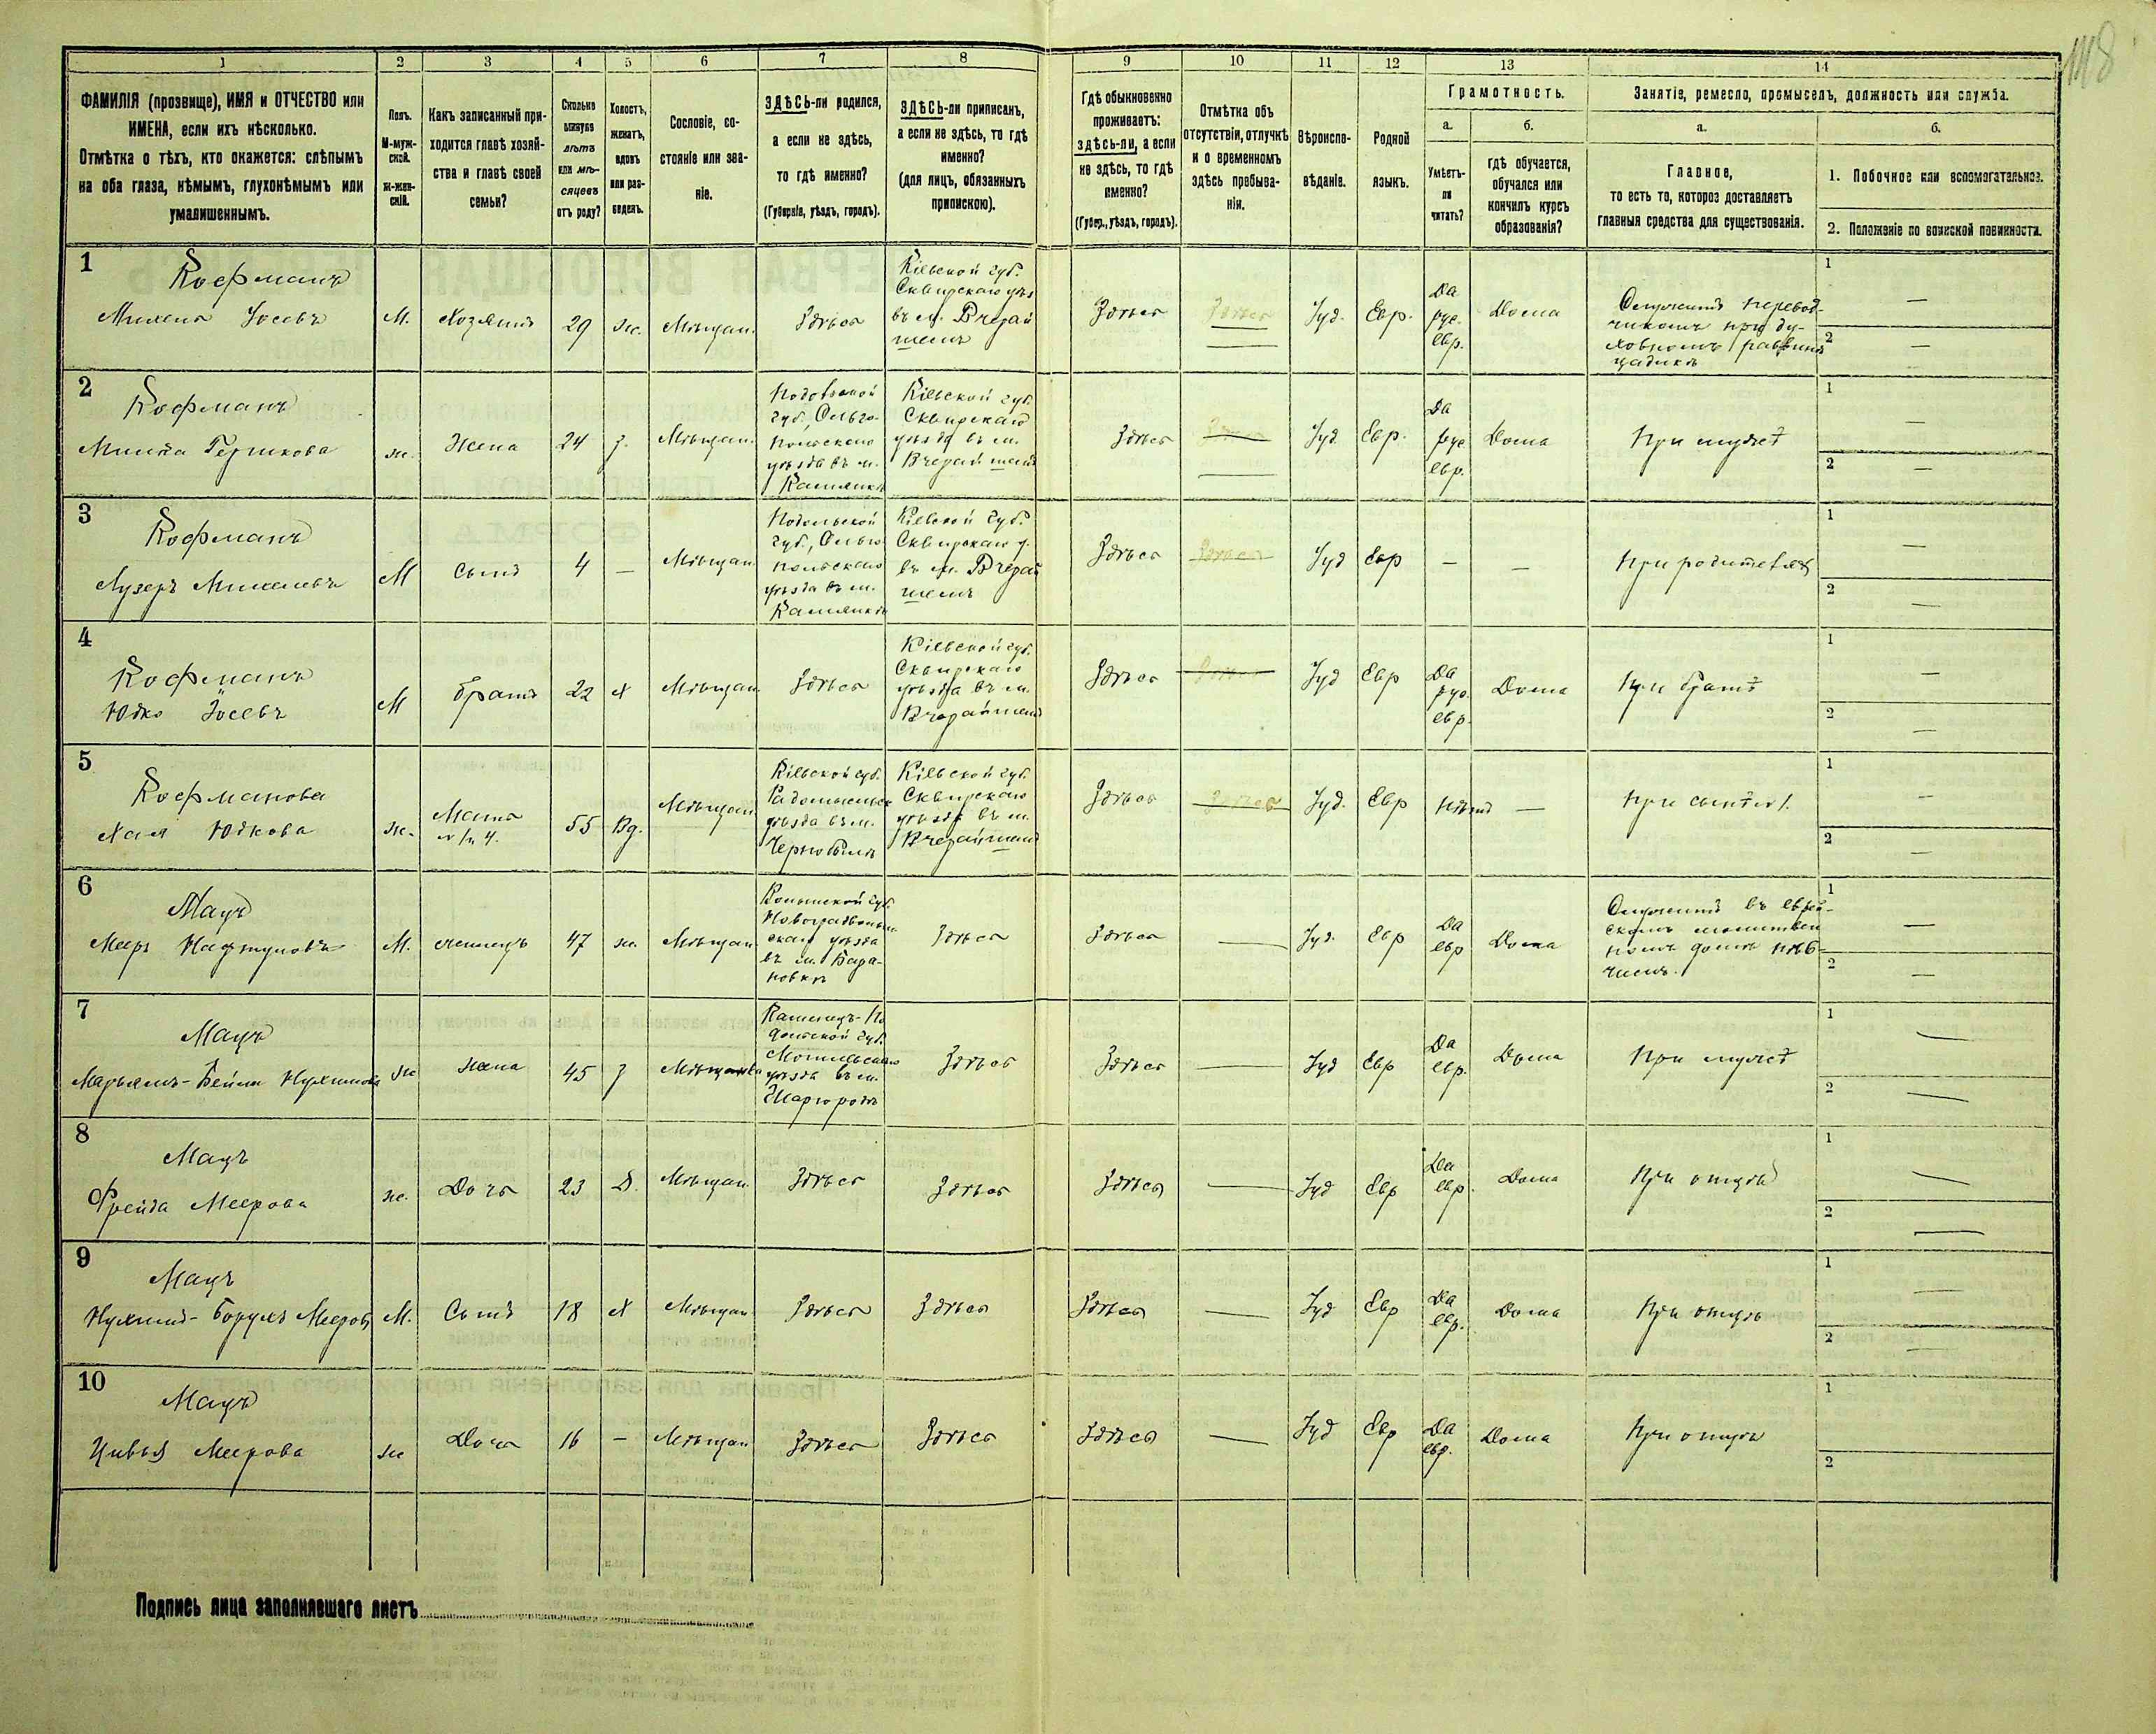 118
1 2 3 4 5 6 7 8 9 10 11 12 13 14
ФАМИЛІЯ (прозвище), ИМЯ и ОТЧЕСТВО или
ИМЕНА, если ихъ нѣсколько.
Отмѣтка о тѣхъ, кто окажется: слѣпымъ
на оба глаза, нѣмымъ, глухонѣмымъ или
умалишеннымъ.
Полъ.
М-муж-
ской.
ж-жен-
скій.
Какъ записанный при-
ходится главѣ хозяй-
ства и главѣ своей
семьи?
Сколько
минуло
лѣтъ
или мѣ-
сяцевъ
отъ роду?
Холостъ,
женатъ,
вдовъ
или раз-
веденъ.
Сословіе, со-
стояніе или зва-
ніе.
ЗДѢСЬ-ли родился,
а если не здѣсь,
то гдѣ именно?
(Губернія, уѣздъ, городъ).
ЗДѢСЬ-ли приписанъ,
а если не здѣсь, то гдѣ
именно?
(для лицъ, обязанныхъ
припискою).
Гдѣ обыкновенно
проживаетъ:
здѣсь-ли, а если
не здѣсь, то гдѣ
именно?
(Губер., уѣздъ, городъ).
Отмѣтка объ
отсутствіи, отлучкѣ
и о временномъ
здѣсь пребыва-
ніи.
Вѣроиспо-
вѣданіе.
Родной
языкъ.
Грамотность.
а.
Умѣетъ-
ли
читать?
б.
гдѣ обучается,
обучался или
кончилъ курсъ
образованія?
Занятіе, ремесло, промыселъ, должность или служба.
а.
Главное,
то есть то, которое доставляетъ
главныя средства для существованія.
б.
1. Побочное или вспомогательное.
2. Положеніе по воинской повинности.
1
Кофманъ
Михель Іосевъ
М.
Хозяинъ
29
ж.
Мѣщан.
Здѣсь
Кіевской губ.
Сквирскаго уѣз
въ м. Вчерай
шемъ
Здѣсь
Здѣсь
Іуд.
Евр.
Да
рус.
евр.
Дома
Служитъ перевод-
чикомъ при ду-
ховномъ раввинѣ
цадикѣ
1 —
2 —
2
Кофманъ
Минта Гершкова
ж.
Жена
24
з.
Мѣщан.
Подольской
губ., Ольго-
польскаго
уѣзда въ м.
Каменкѣ
Кіевской губ.
Сквирскаго
уѣзда въ м.
Вчерайшемъ
Здѣсь
—
Іуд.
Евр.
Да
рус
евр.
Дома
При мужѣ
1 —
2 —
3
Кофманъ
Лузеръ Михелевъ
М
Сынъ
4
—
Мѣщан.
Подольской
губ., Ольго
польскаго
уѣзда въ м.
Каменкѣ
Кіевской губ.
Сквирскаго у.
въ м. Вчерай
шемъ
Здѣсь
Здѣсь
Іуд
Евр
—
—
При родителяхъ
1 —
2 —
4
Кофманъ
Юдко Іосевъ
М
братъ
22
х
Мѣщан.
Здѣсь
Кіевской губ.
Сквирскаго
уѣзда въ м.
Вчерайшемъ
Здѣсь
Іуд
Евр
Да
рус.
евр.
Дома
При братѣ
1 —
2 —
5
Кофманова
Хая Юдкова
ж.
Мать
№ 1 и 4.
55
Вд.
Мѣщан.
Кіевской губ.
Радомысльск
уѣзда въ м.
Чернобылѣ
Кіевской губ.
Сквирскаго
уѣзда въ м.
Вчерайшемъ
Здѣсь
Здѣсь
Іуд.
Евр
Нѣтъ
—
При сынѣ № 1.
1 —
2 —
6
Мацъ
Мееръ Нафтуловъ
М.
жилецъ
47
ж.
Мѣщан.
Волынской губ.
Новоградволын
скаго уѣзда
въ м. Бара-
новкѣ
Здѣсь
Здѣсь
—
Іуд.
Евр
Да
евр
Дома
Служитъ въ еврей-
скомъ молитвен
номъ домѣ пѣв-
чимъ.
1 —
2 —
7
Мацъ
Марьямъ-Бейла Нухимова
ж
жена
45
з
Мѣщанка
Каменецъ-По
дольской губ.
Могилевскаго
уѣзда въ м.
Шаргородѣ
Здѣсь
Здѣсь
—
Іуд
Евр
Да
евр.
Дома
При мужѣ
1 —
2 —
8
Мацъ
Фрейда Меерова
ж.
Дочь
23
Д.
Мѣщан.
Здѣсь
Здѣсь
Здѣсь
—
Іуд
Евр
Да
евр.
Дома
При отцѣ
1 —
2 —
9
Мацъ
Нухимъ-Борухъ Мееровъ
М.
Сынъ
18
х
Мѣщан
Здѣсь
Здѣсь
Здѣсь
—
Іуд
Евр
Да
евр.
Дома
При отцѣ
1 —
2 —
10
Мацъ
Цивья Меерова
ж
Дочь
16
—
Мѣщан
Здѣсь
Здѣсь
Здѣсь
—
Іуд
Евр
Да
евр.
Дома
При отцѣ
1
2
Подпись лица заполнявшаго листъ